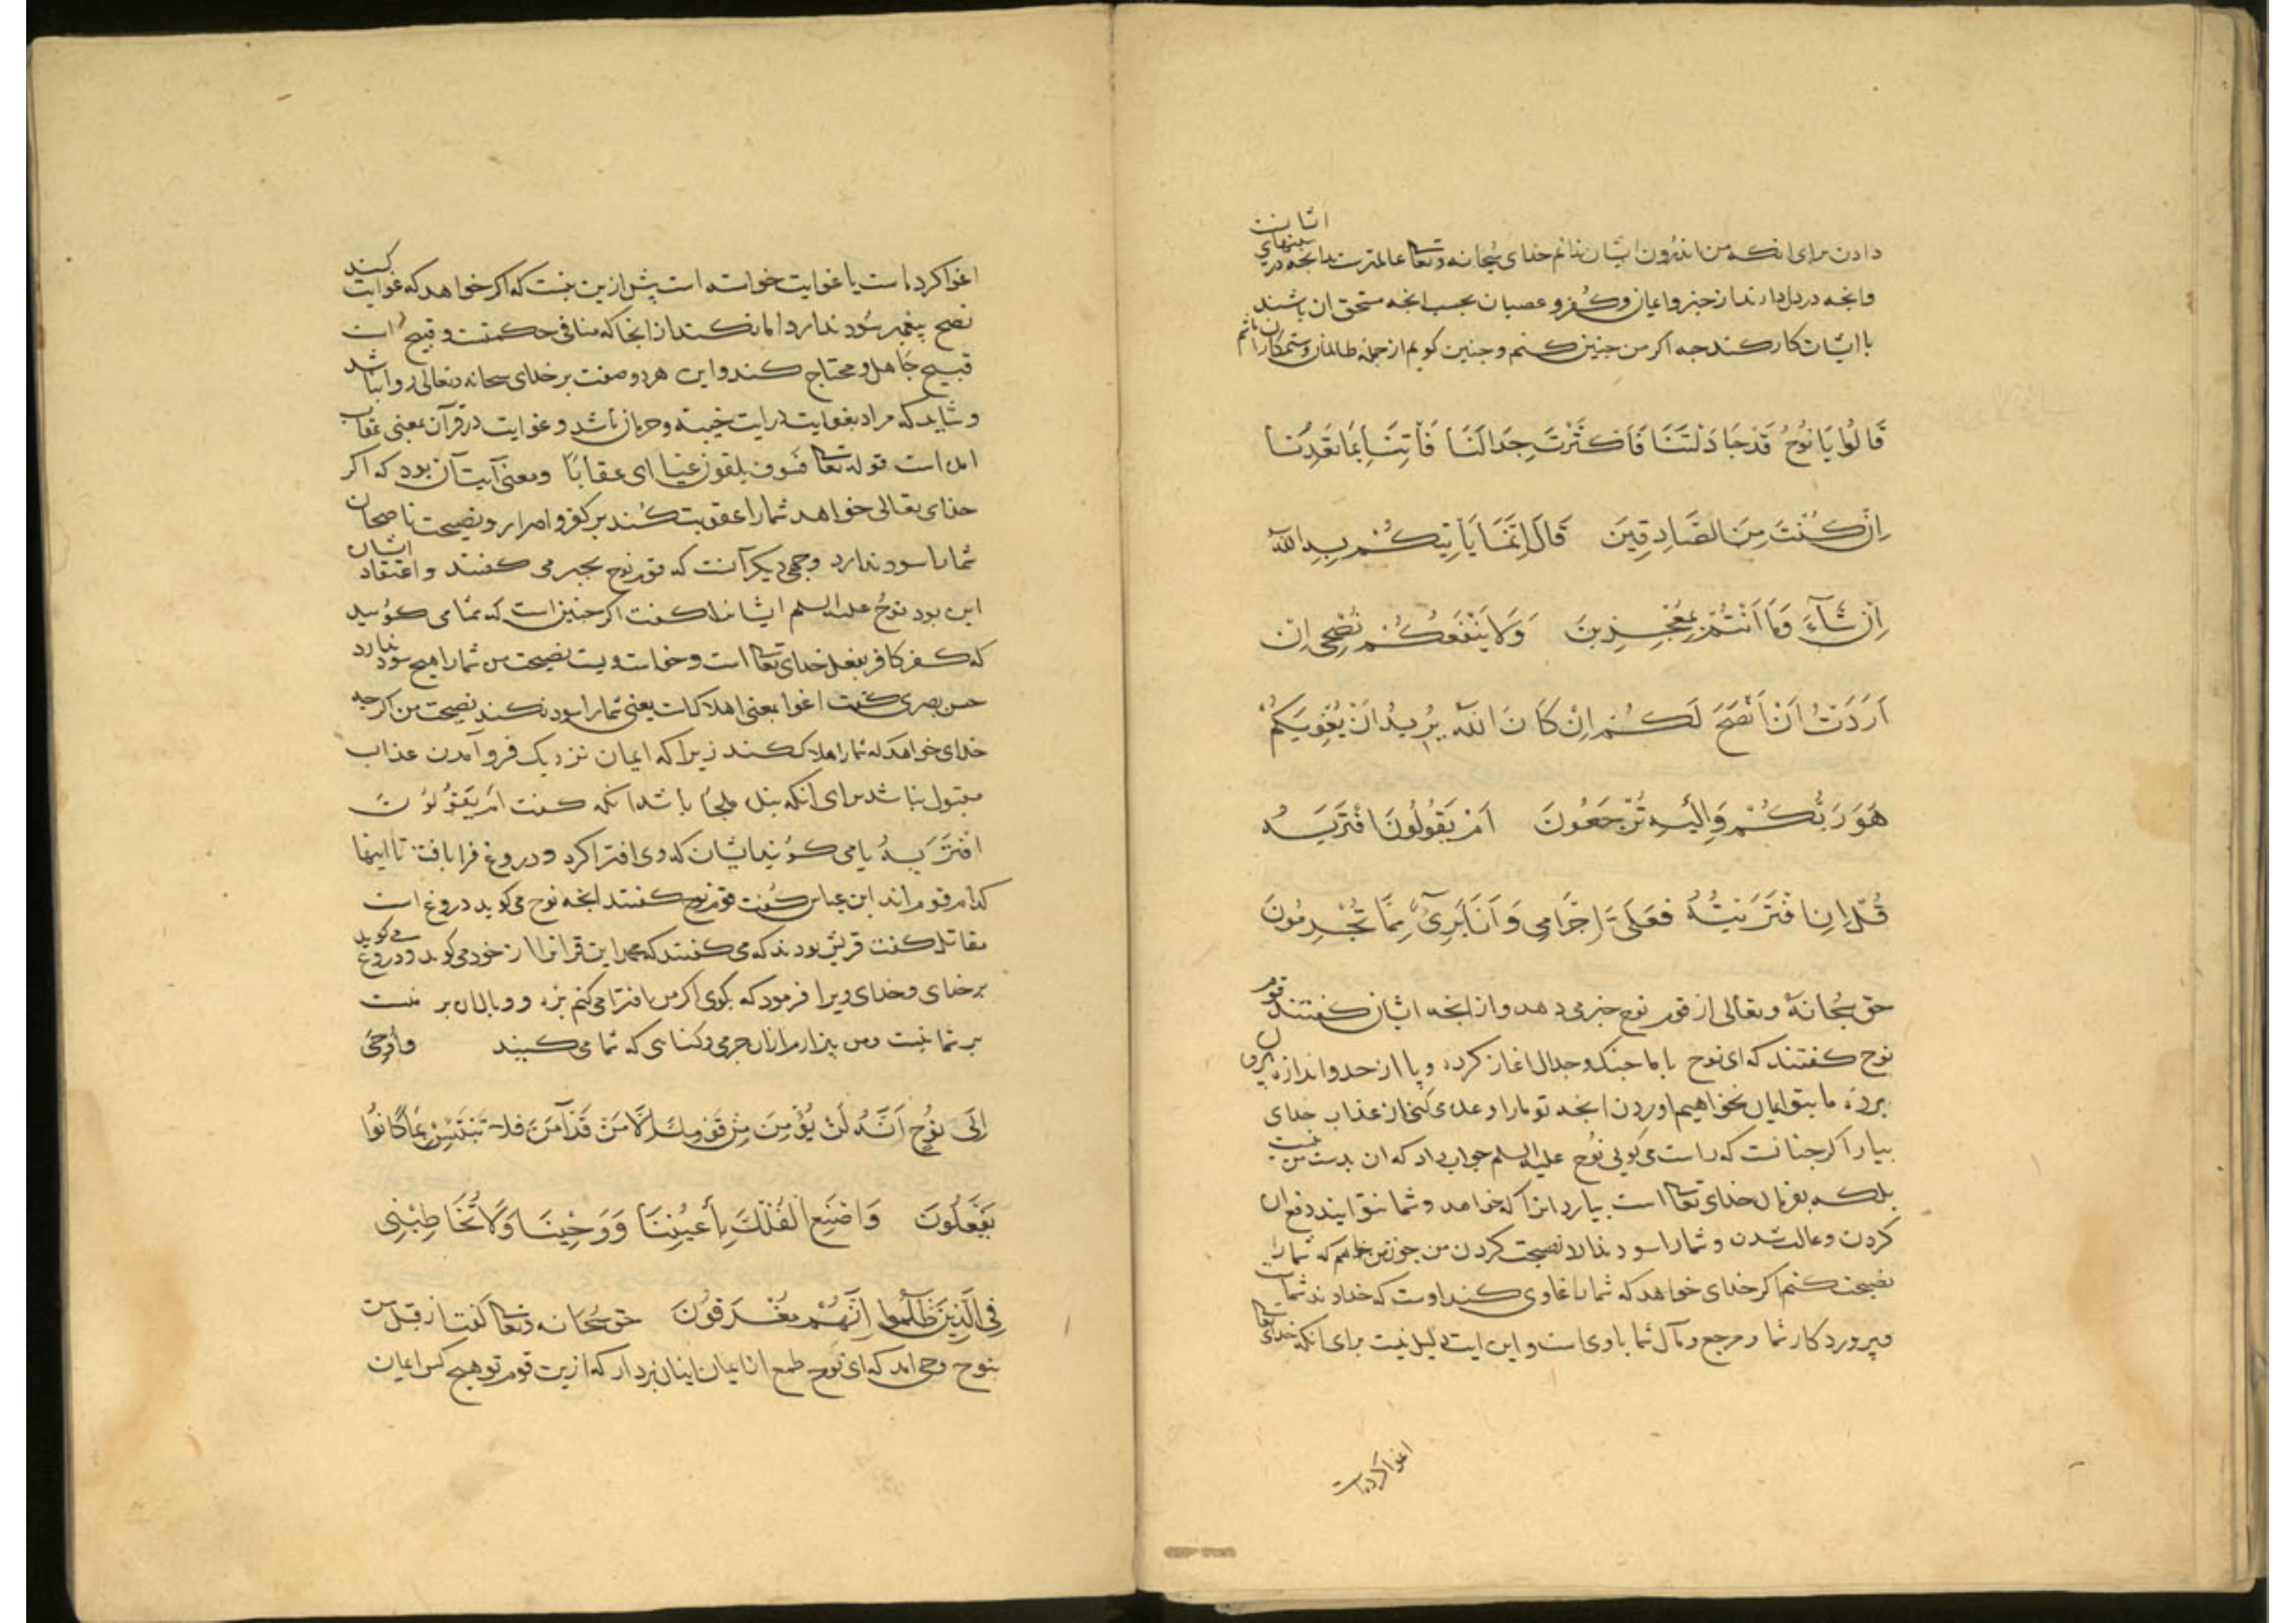 دادن برای انکه من اندرون ایشان ندانم خدای سبحانه وتعالی عالمترست بدانچه در سینهای ایشانست
وانجه در دل دارند از خیر و ایمان و کفر و عصیان بحسب انجه مستحق ان باشند
با ایشان کار کند جه اکر من جنین کنم و جنین کویم از جمله ظالمان و ستمکاران باشم
قَالُوا يَا نُوحُ قَدْ جَادَلْتَنَا فَأَكْثَرْتَ جِدَالَنَا فَأْتِنَا بِمَا تَعِدُنَا
اِنْ كُنْتَ مِنَ الصَّادِقِينَ قَالَ اِنَّمَا يَأْتِيكُمْ بِهِ اللَّهُ
اِنْ شَآءَ وَمَا اَنْتُمْ بِمُعْجِزِينَ وَلَا يَنْفَعُكُمْ نُصْحِى اِنْ
اَرَدْتُ اَنْ اَنْصَحَ لَكُمْ اِنْ كَانَ اللَّهُ يُرِيدُ اَنْ يُغْوِيَكُمْ
هُوَ رَبُّكُمْ وَاِلَيْهِ تُرْجَعُونَ اَمْ يَقُولُونَ افْتَرَيهُ
قُلْ اِنِ افْتَرَيْتُهُ فَعَلَىَّ اِجْرَامِى وَاَنَا بَرِىءٌ مِمَّا تُجْرِمُونَ
حق سبحانه وتعالی از قوم نوح خبر می دهد و از انجه ایشان کفتند قوم
نوح کفتند که ای نوح با ما جنک و جدال اغاز کرده و پا از حد و اندازه بیرون
برده ما بتو ایمان نخواهیم اوردن انجه تو ما را وعده می کنی از عذاب خدای
بیار اکر جنانست که راست می کویی نوح علیه السلم جواب داد که ان بدست من نیست
بلکه بفرمان خدای تعالی است بیارد انرا که خواهد و شما نتوانید دفع ان
کردن و شما را سود ندارد نصیحت کردن من جون من خواهم که شما را
نصیحت کنم اکر خدای خواهد که شما را غاوی کند اوست که خداوند شماست
و پروردکار شما و مرجع و مآل شما با وی است و این ایت دلیل نیست برای انکه خدای تعالی
اغوا کرده است
اغوا کرده است یا غوایت خواسته است بیش ازین نیست که اکر خواهد که غوایت کند
نصح پیغمبر سود ندارد اما نکند از انجا که منافی حکمتست و قبیح است
قبیح جاهل و محتاج کند و این هر دو صفت بر خدای سبحانه وتعالی روا نباشد
و شاید که مراد بغوایت درایت خیبة و حرمان باشد و غوایت در قرآن بمعنی عقاب
امده است قوله تعالی فسوف یلقون غیا ای عقابًا و معنی آیت آن بود که اکر
خدای تعالی خواهد شما را عقوبت کند بر کفر و اصرار و نصیحت ناصحان
شما را سود ندارد وجهی دیکر آنست که قوم نوح بجبر می کفتند و اعتقاد ایشان
این بود نوح علیه السلم ایشانرا کفت اکر جنین است که شما می کوئید
که کفر کافر بفعل خدای تعالی است و خواست ویست نصیحت من شما را هیچ سود ندارد
حسن بصری کفت اغوا بمعنی اهلاکست یعنی شما را سود نکند نصیحت من اکرچه
خدای خواهد که شما را هلاک کند زیرا که ایمان نزدیک فرو آمدن عذاب
مقبول نباشد برای آنکه بنده ملجأ باشد آنکه کفت اَمْ يَقُولُونَ
افْتَرَيهُ یا می کویند ایشان که وی افترا کرد و دروغ فرا بافت تا اینها
کدام قوم اند ابن عباس کفت قوم نوح کفتند انجه نوح می کوید دروغ است
مقاتل کفت قریش بودند که می کفتند که محمد این قرانرا از خود می کوید و دروغ می کوید
بر خدای و خدای ویرا فرمود که بکوی اکر من افترا می کنم بزه و وبال ان بر منست
بر شما نیست و من بیزارم ازان جرمی و کناهی که شما می کنید وَاُوحِىَ
اِلَى نُوحٍ اَنَّهُ لَنْ يُؤْمِنَ مِنْ قَوْمِكَ اِلَّا مَنْ قَدْ آمَنَ فَلَا تَبْتَئِسْ بِمَا كَانُوا
يَفْعَلُونَ وَاصْنَعِ الْفُلْكَ بِأَعْيُنِنَا وَوَحْيِنَا وَلَا تُخَاطِبْنِى
فِى الَّذِينَ ظَلَمُوا اِنَّهُمْ مُغْرَقُونَ حق سبحانه وتعالی کفت از قبل من
بنوح وحی امد که ای نوح طمع از ایمان اینان بردار که ازین قوم تو هیچ کس ایمان